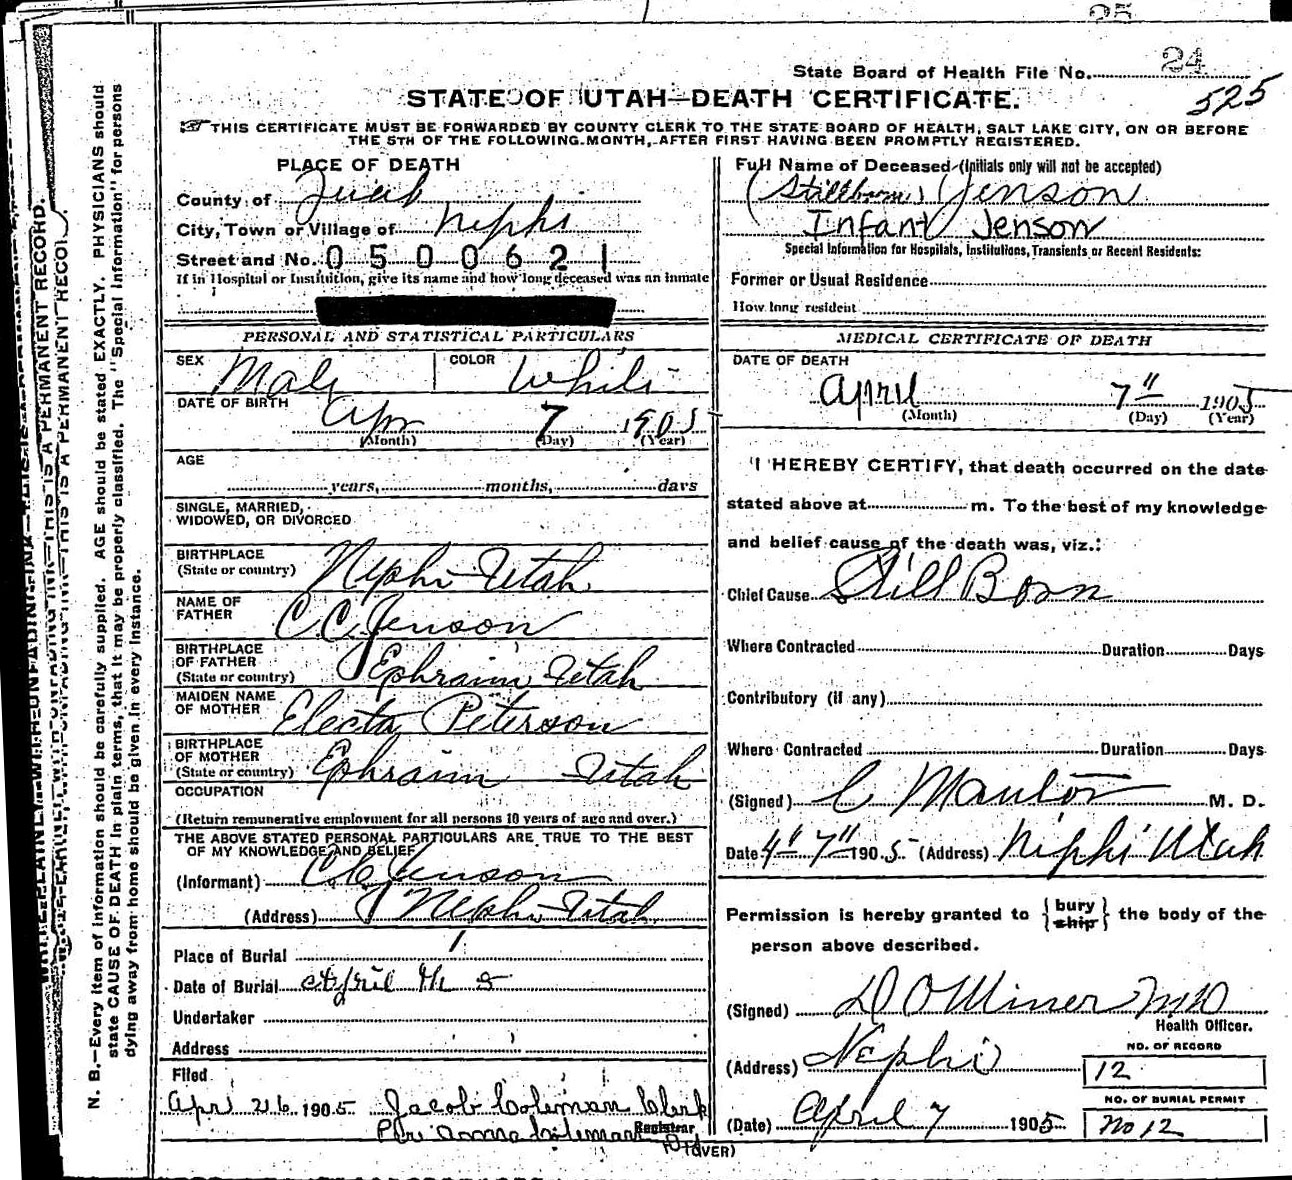 25
State Board of Health File No. 24
525
STATE OF UTAH—DEATH CERTIFICATE.
THIS CERTIFICATE MUST BE FORWARDED BY COUNTY CLERK TO THE STATE BOARD OF HEALTH, SALT LAKE CITY, ON OR BEFORE
THE 5TH OF THE FOLLOWING MONTH, AFTER FIRST HAVING BEEN PROMPTLY REGISTERED.
PLACE OF DEATH
County of Juab
City, Town or Village of Nephi
Street and No. 0500621
If in Hospital or Institution, give its name and how long deceased was an inmate
PERSONAL AND STATISTICAL PARTICULARS
SEX Male COLOR White
DATE OF BIRTH
Apr 7 1905
(Month) (Day) (Year)
AGE
years, months, days
SINGLE, MARRIED,
WIDOWED, OR DIVORCED
BIRTHPLACE
(State or country) Nephi Utah
NAME OF
FATHER C C Jenson
BIRTHPLACE
OF FATHER
(State or country) Ephraim Utah
MAIDEN NAME
OF MOTHER Electa Peterson
BIRTHPLACE
OF MOTHER
(State or country) Ephraim Utah
OCCUPATION
(Return remunerative employment for all persons 10 years of age and over.)
THE ABOVE STATED PERSONAL PARTICULARS ARE TRUE TO THE BEST
OF MY KNOWLEDGE AND BELIEF
(Informant) C C Jenson
(Address) Nephi Utah
Place of Burial
Date of Burial April
Undertaker
Address
Filed
Apr 26 1905 Jacob Coleman Clerk
Per Anna Coleman Registrar
(OVER)
Full Name of Deceased (Initials only will not be accepted)
(Stillborn) Jenson
Infant Jenson
Special Information for Hospitals, Institutions, Transients or Recent Residents:
Former or Usual Residence
How long resident
MEDICAL CERTIFICATE OF DEATH
DATE OF DEATH
April 7" 1905
(Month) (Day) (Year)
I HEREBY CERTIFY, that death occurred on the date
stated above at m. To the best of my knowledge
and belief cause of the death was, viz.:
Chief Cause Still Born
Where Contracted Duration Days
Contributory (if any)
Where Contracted Duration Days
(Signed) M. D.
Date 4" 7" 1905 (Address) Nephi Utah
Permission is hereby granted to { bury ship } the body of the
person above described.
(Signed) D O Miner MD
Health Officer.
(Address) Nephi
NO. OF RECORD
12
(Date) April 7 1905
NO. OF BURIAL PERMIT
No 12
N. B.—Every item of information should be carefully supplied. AGE should be stated EXACTLY. PHYSICIANS should
state CAUSE OF DEATH in plain terms, that it may be properly classified. The "Special Information" for persons
dying away from home should be given in every instance.
WRITE PLAINLY WITH UNFADING INK—THIS IS A PERMANENT RECORD.